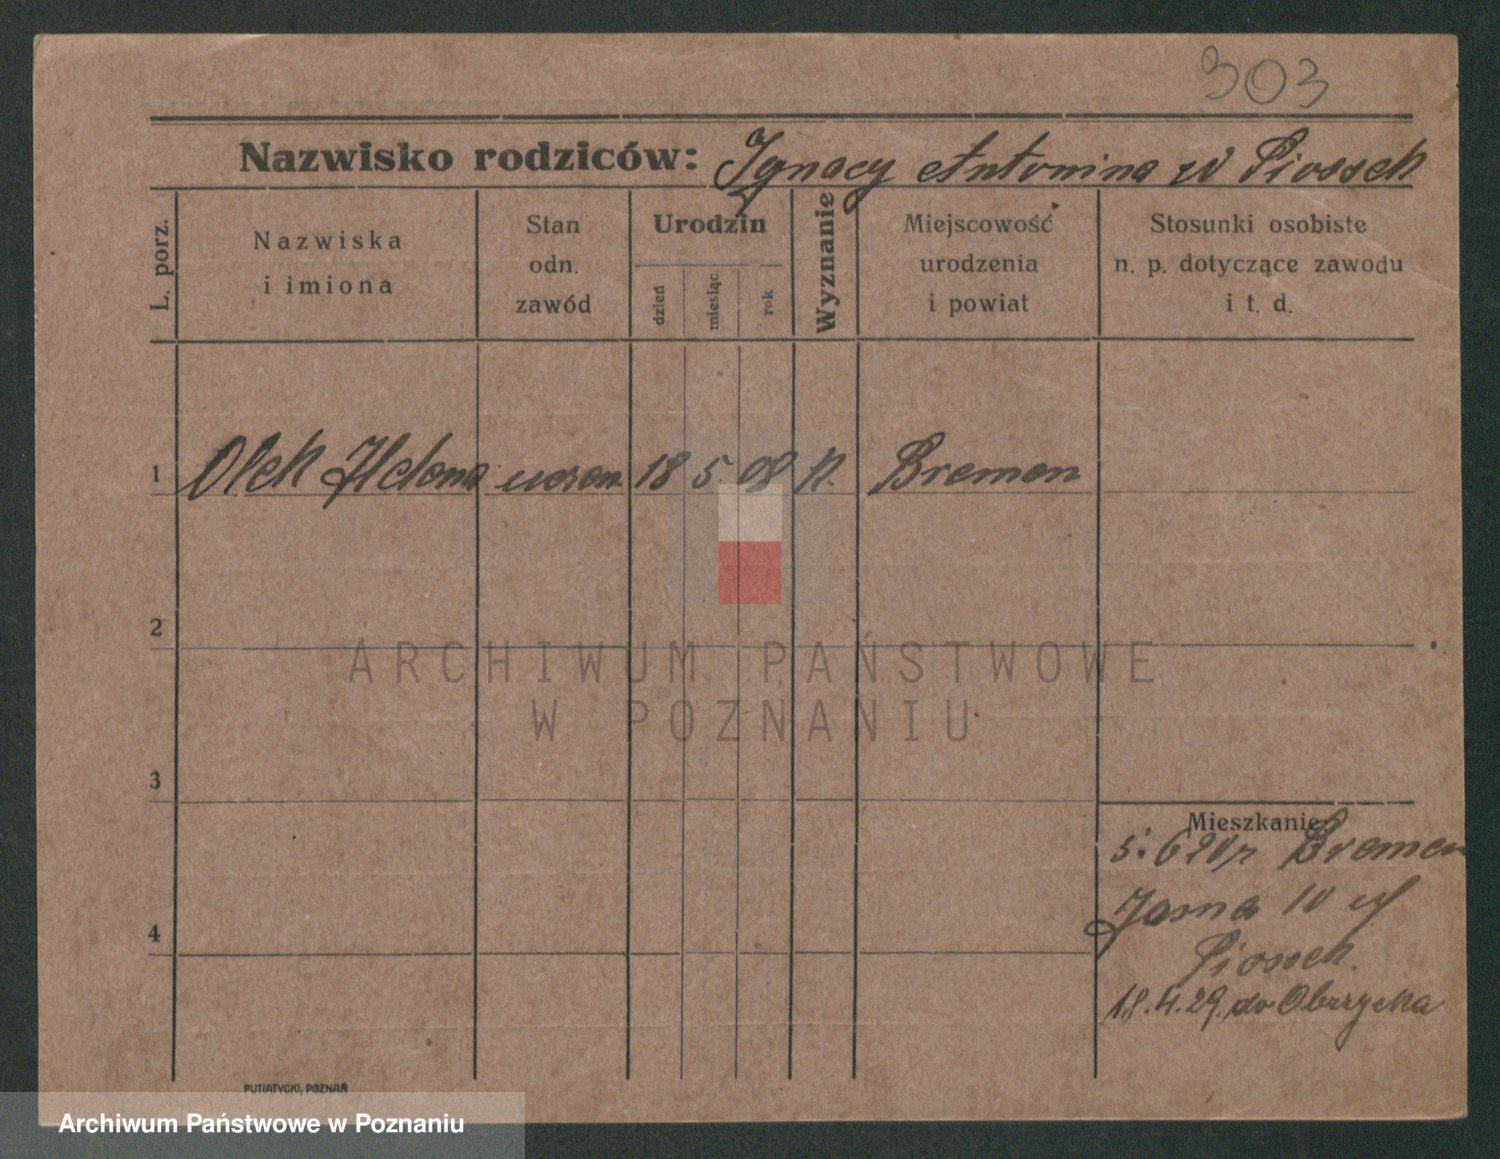 303
Nazwisko rodziców: Ignacy Antonina w Piossek
L. porz.
Nazwiska
i imiona
Stan
odn.
zawód
Urodzin
dzień
miesiąc
rok
Wyznanie
Miejscowość
urodzenia
i powiat
Stosunki osobiste
n. p. dotyczące zawodu
i t. d.
1 Olek Helena uczen. 18 5. 08 k. Bremen
2
ARCHIWUM PAŃSTWOWE
W POZNANIU
3
Mieszkanie
5. 6 Bremen
4
Jasna 10
Piossek.
18.4.29. do Obrzycka
PUTIATYCKI, POZNAŃ
Archiwum Państwowe w Poznaniu